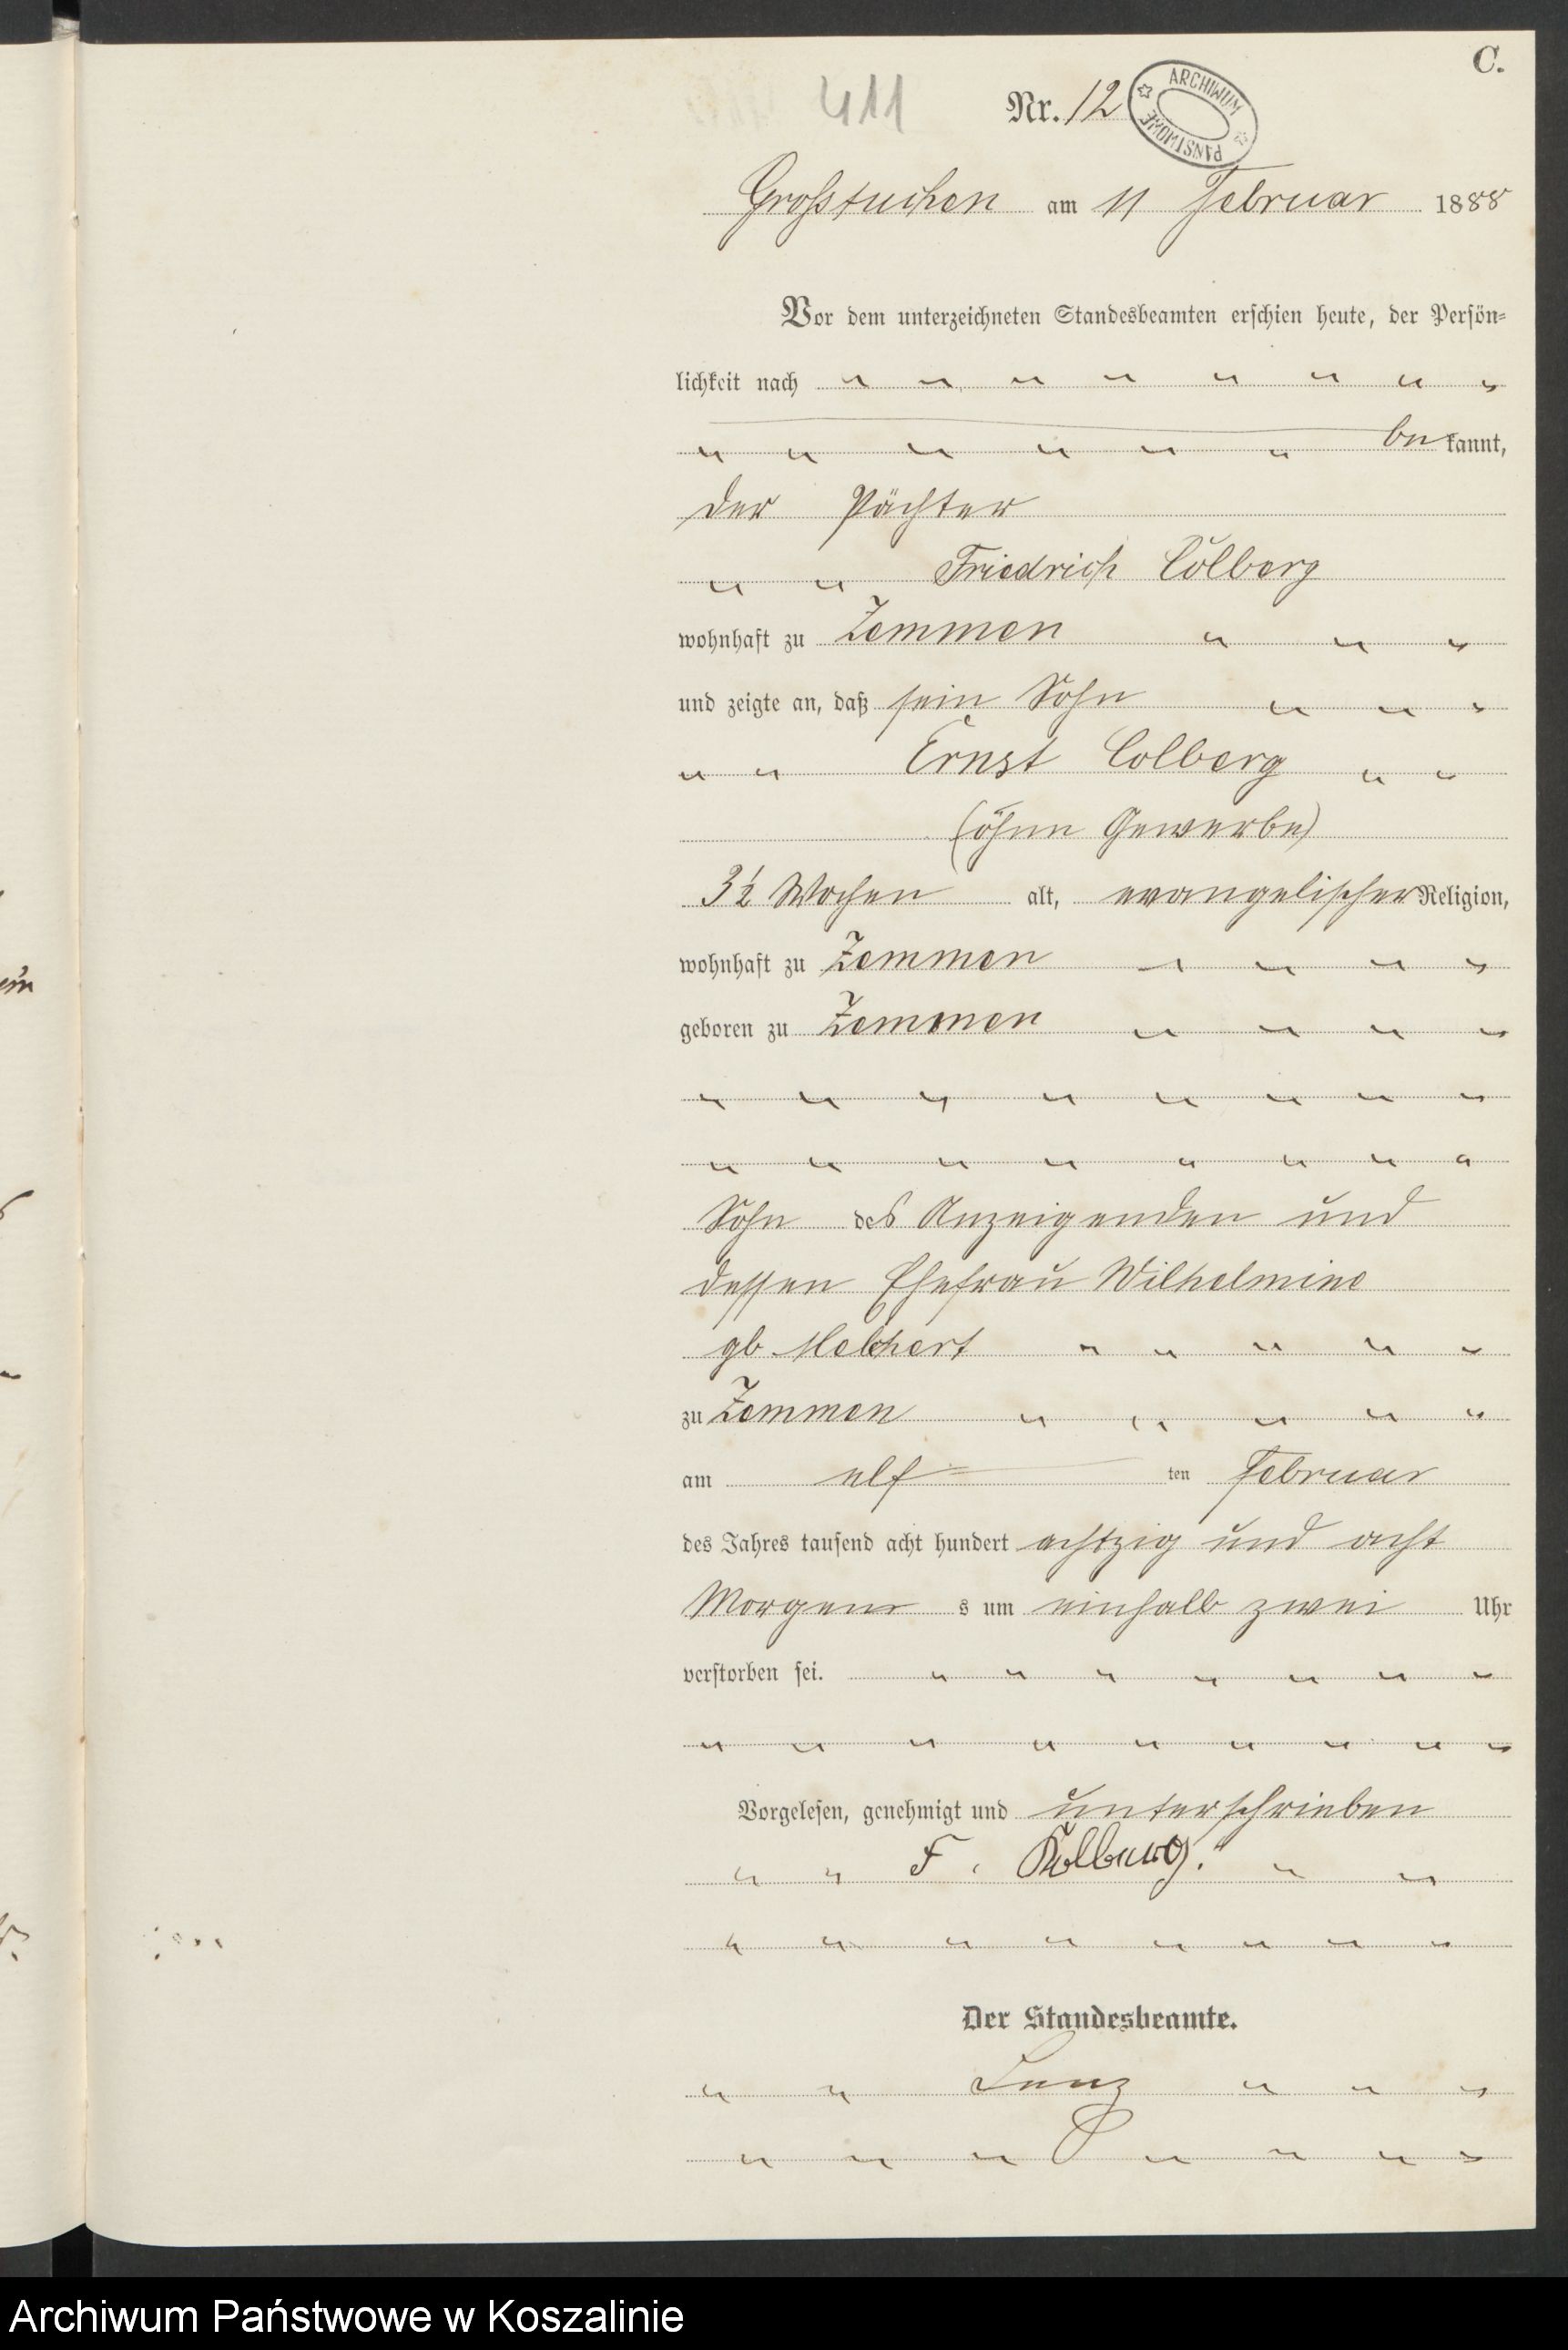 C.
411
Nr. 12
ARCHIWUM PAŃSTWOWE
Grosstuchen am 11 Februar 1888
Vor dem unterzeichneten Standesbeamten erschien heute, der Persön-
lichkeit nach " " " " " " " "
" " " " " " bekannt,
der Pächter
" " Friedrich Colberg
wohnhaft zu Zemmen " " "
und zeigte an, daß sein Sohn " " "
" " Ernst Colberg " "
(ohne Gewerbe)
3½ Wochen alt, evangelischer Religion,
wohnhaft zu Zemmen " " " "
geboren zu Zemmen " " " "
" " " " " " " "
" " " " " " " "
Sohn des Anzeigenden und
dessen Ehefrau Wilhelmine
gb " " " " "
zu Zemmen " " " " "
am elf ten Februar
des Jahres tausend acht hundert achtzig und acht
Morgens um einhalb zwei Uhr
verstorben sei. " " " " " " "
" " " " " " " " "
Vorgelesen, genehmigt und unterschrieben
" " F. Kolberg. " "
" " " " " " " "
Der Standesbeamte.
" " Lenz " " "
" " " " " " "
Archiwum Państwowe w Koszalinie